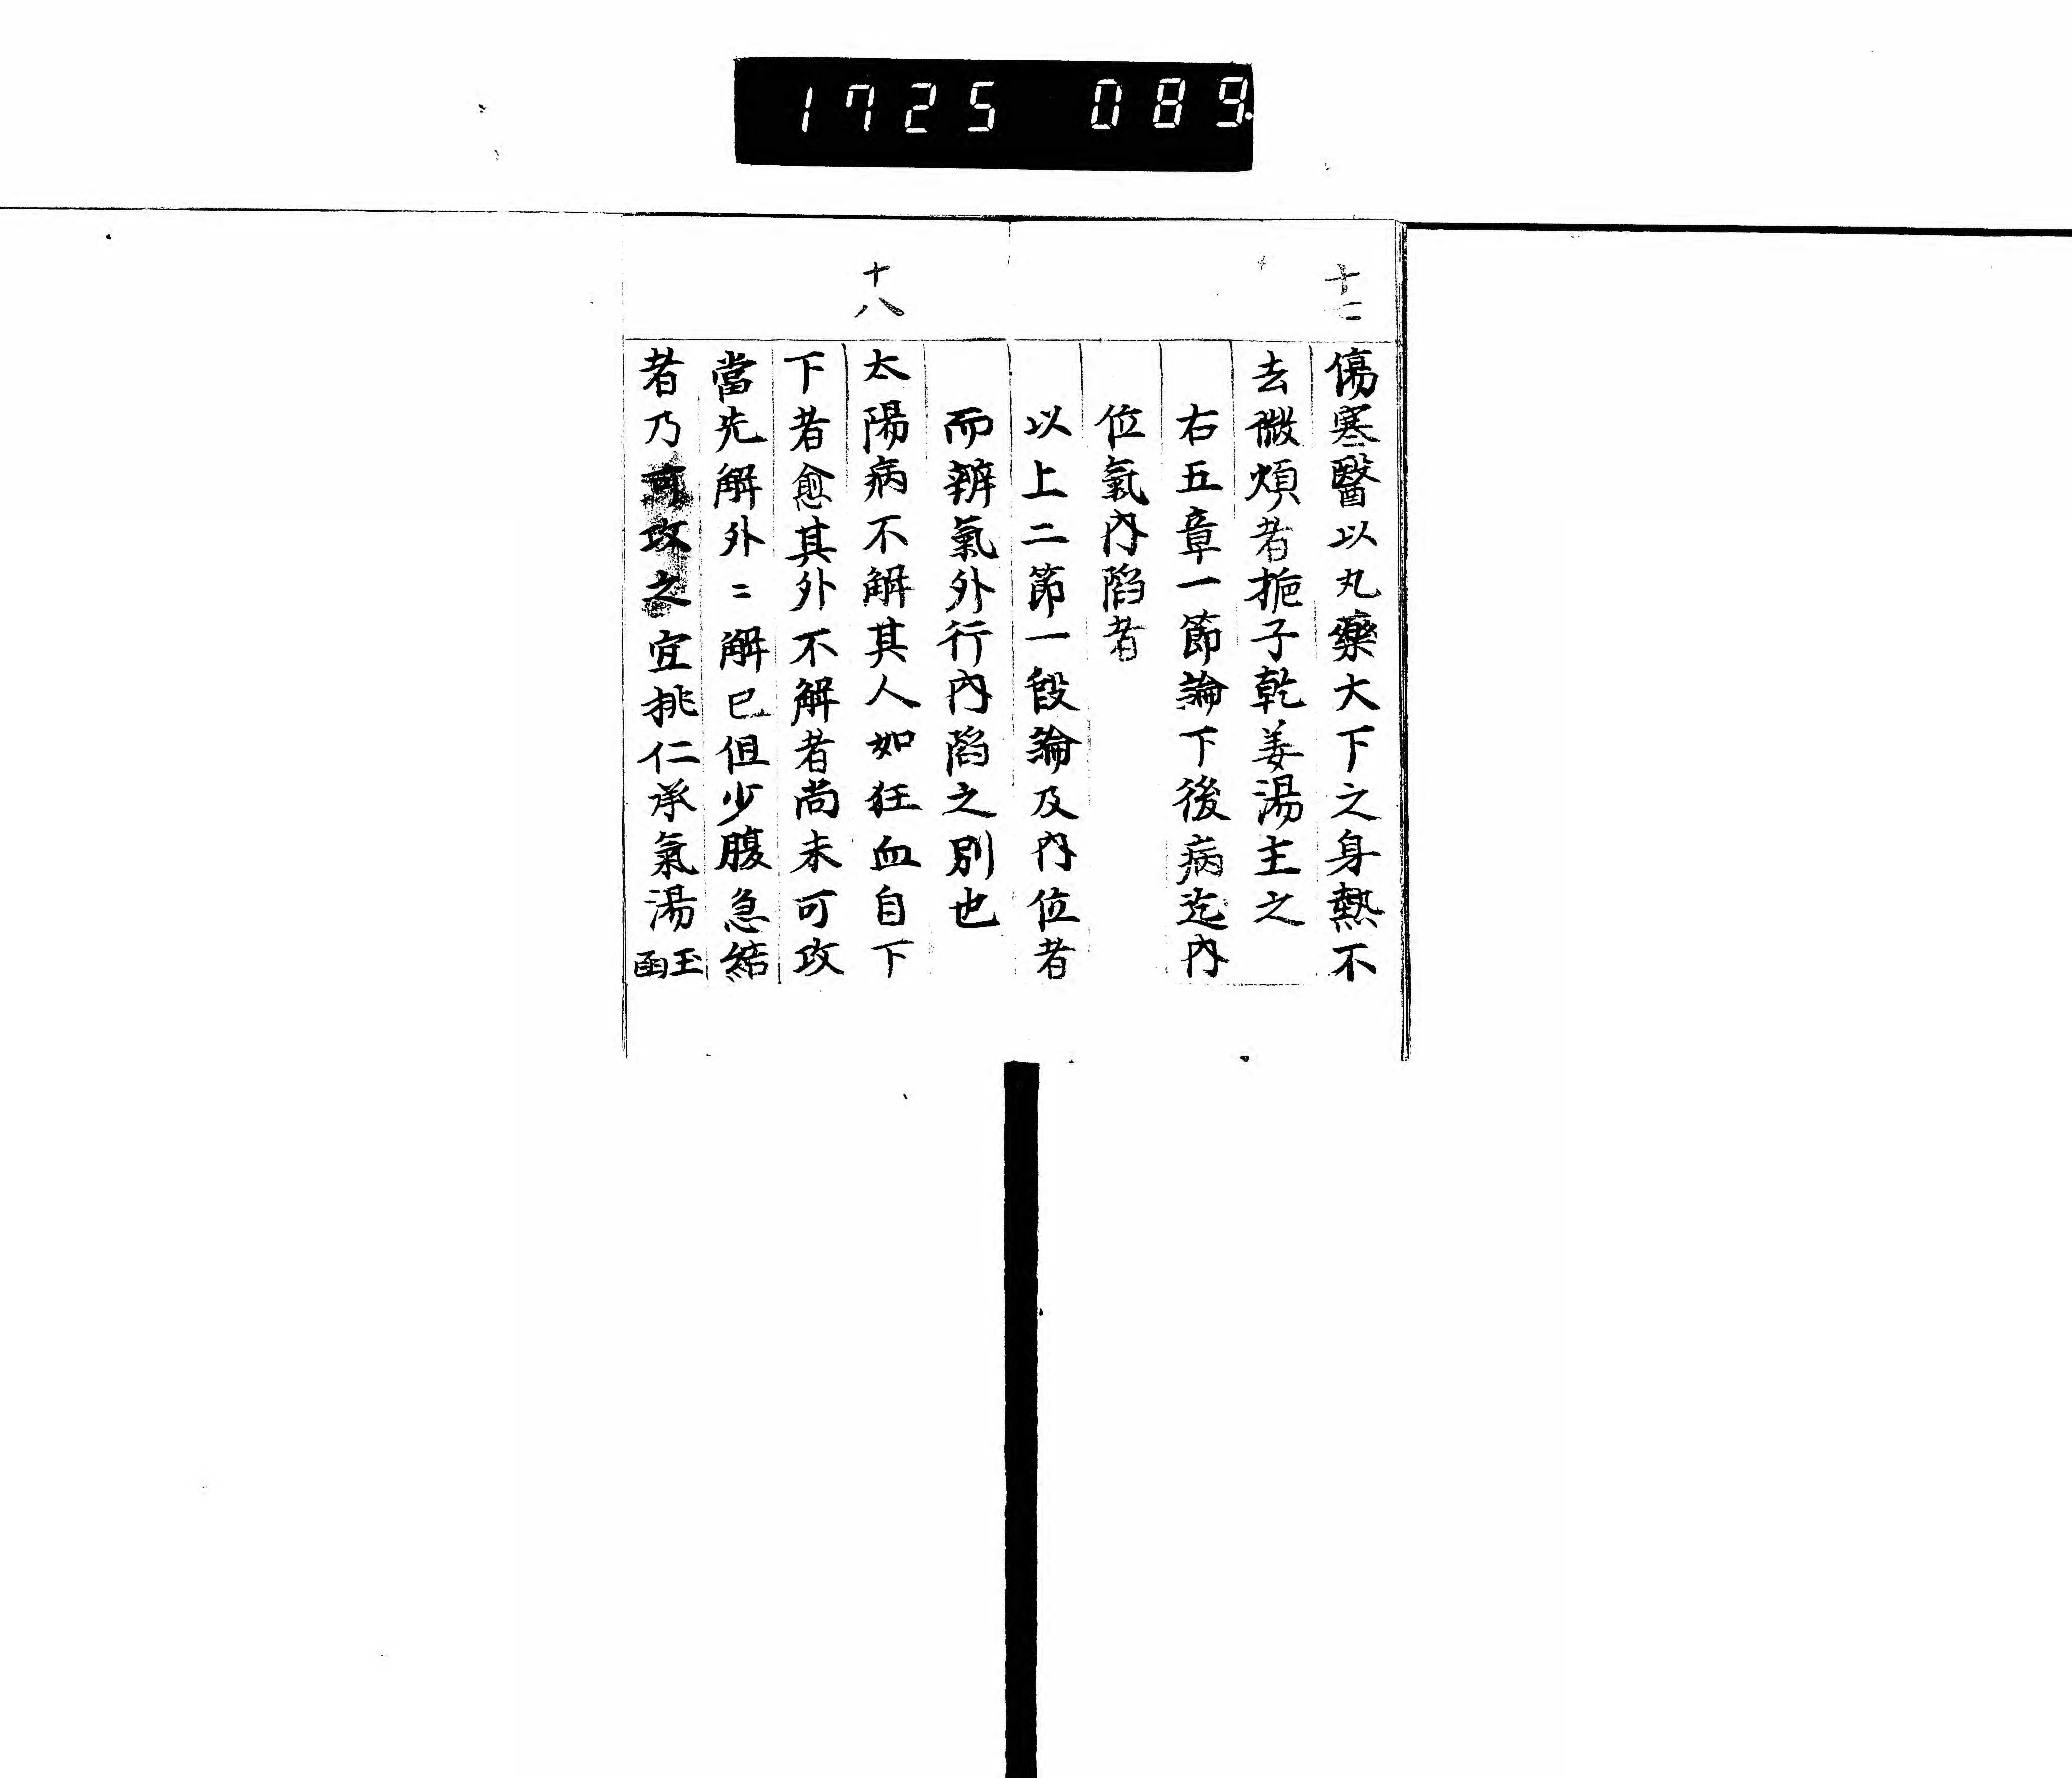 1725 089
十七
傷寒醫以丸藥大下之身熱不
去微煩者梔子乾姜湯主之
右五章一節論下後病迄內
位氣內陷者
以上二節一段論及內位者
而辨氣外行內陷之別也
十八
太陽病不解其人如狂血自下
下者愈其外不解者尚未可攻
當先解外〻解已但少腹急結
者乃可攻之宜桃仁承氣湯玉函